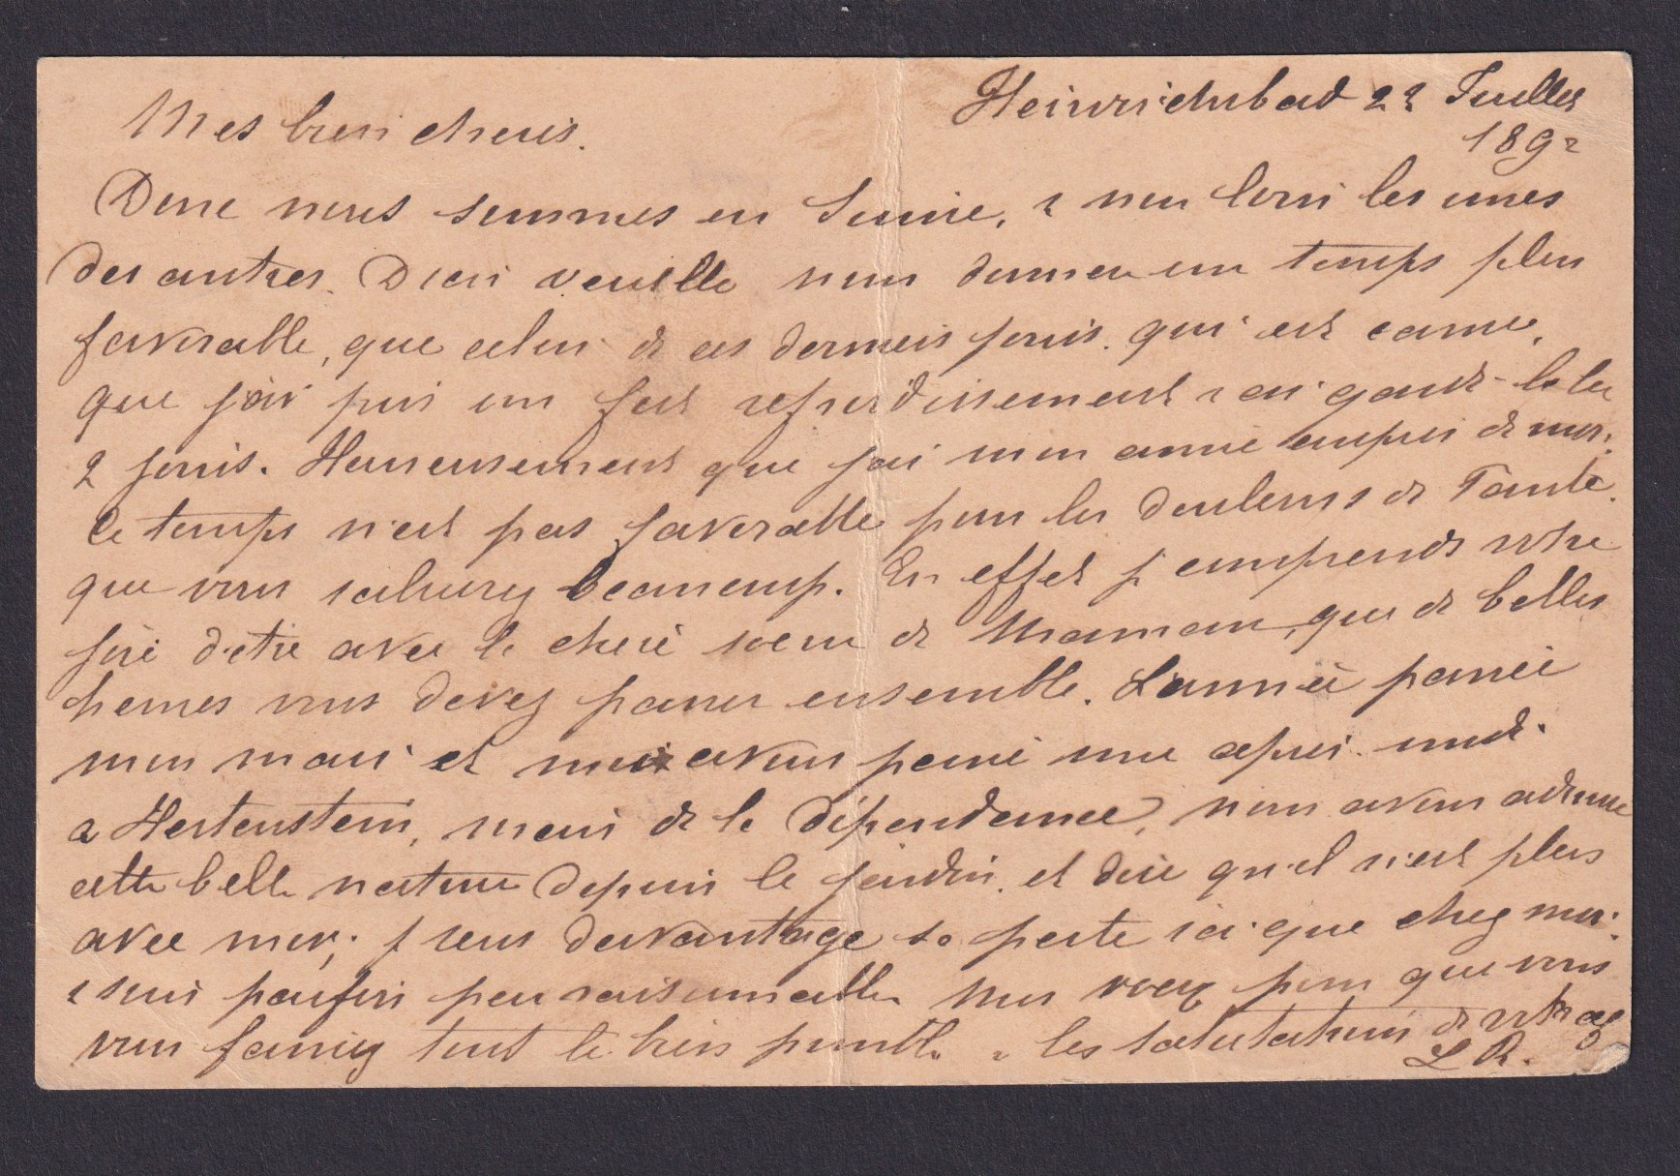 Heinrichsbad 22 Juillet
1892
Mes bien chers.
Donc nous sommes en Suisse, & non loin les unes
des autres. Dieu veuille nous donner un temps plus
favorable, que celui de ces derniers jours. qui est cause,
que j'ai pris un fort refroidissement & ai gardé le lit
2 jours. Heureusement que j'ai mon amie auprès de moi.
Ce temps n'est pas favorable pour les douleurs de Tante.
que vous saluerez beaucoup. En effet je comprends votre
joie d'être avec la chère soeur de Maman, que de belles
heures vous devez passer ensemble. L'année passée
mon mari et moi avons passé une après midi
a Hertenstein, mais de la dépendance, nous avons admiré
cette belle nature depuis le jardin, et dire qu'il n'est plus
avec moi; je sens davantage sa perte ici que chez moi.
& suis parfois peu raisonnable. Mes voeux pour que vous
vous fassiez tout le bien possible & les salutations de votre
L R.